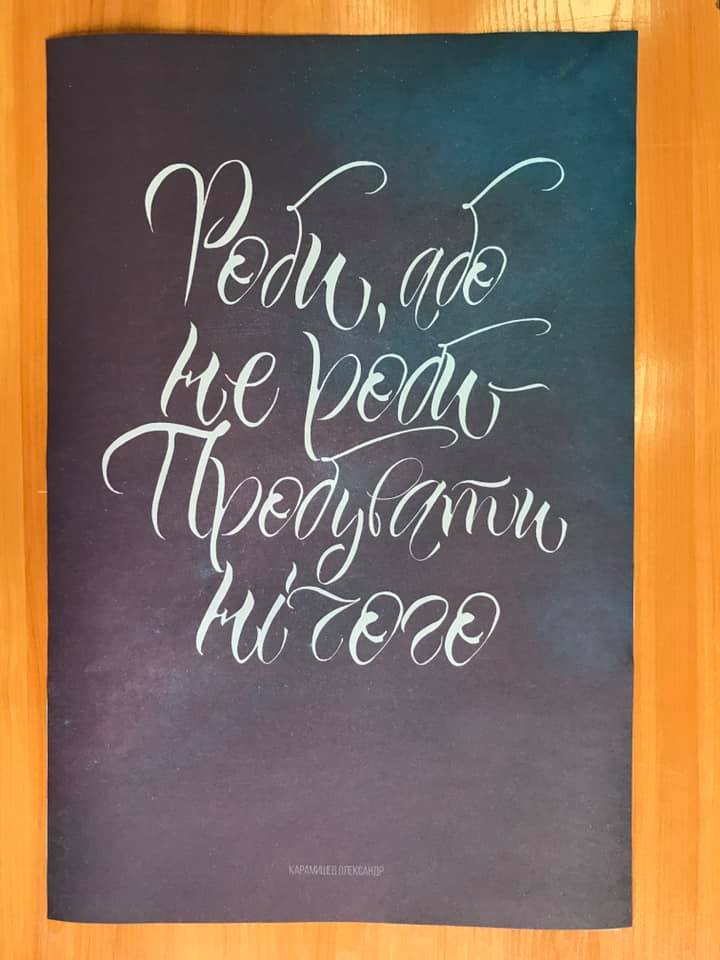 Роби, або
не роби
Пробувати
нічого
КАРАМИШЕВ ОЛЕКСАНДР